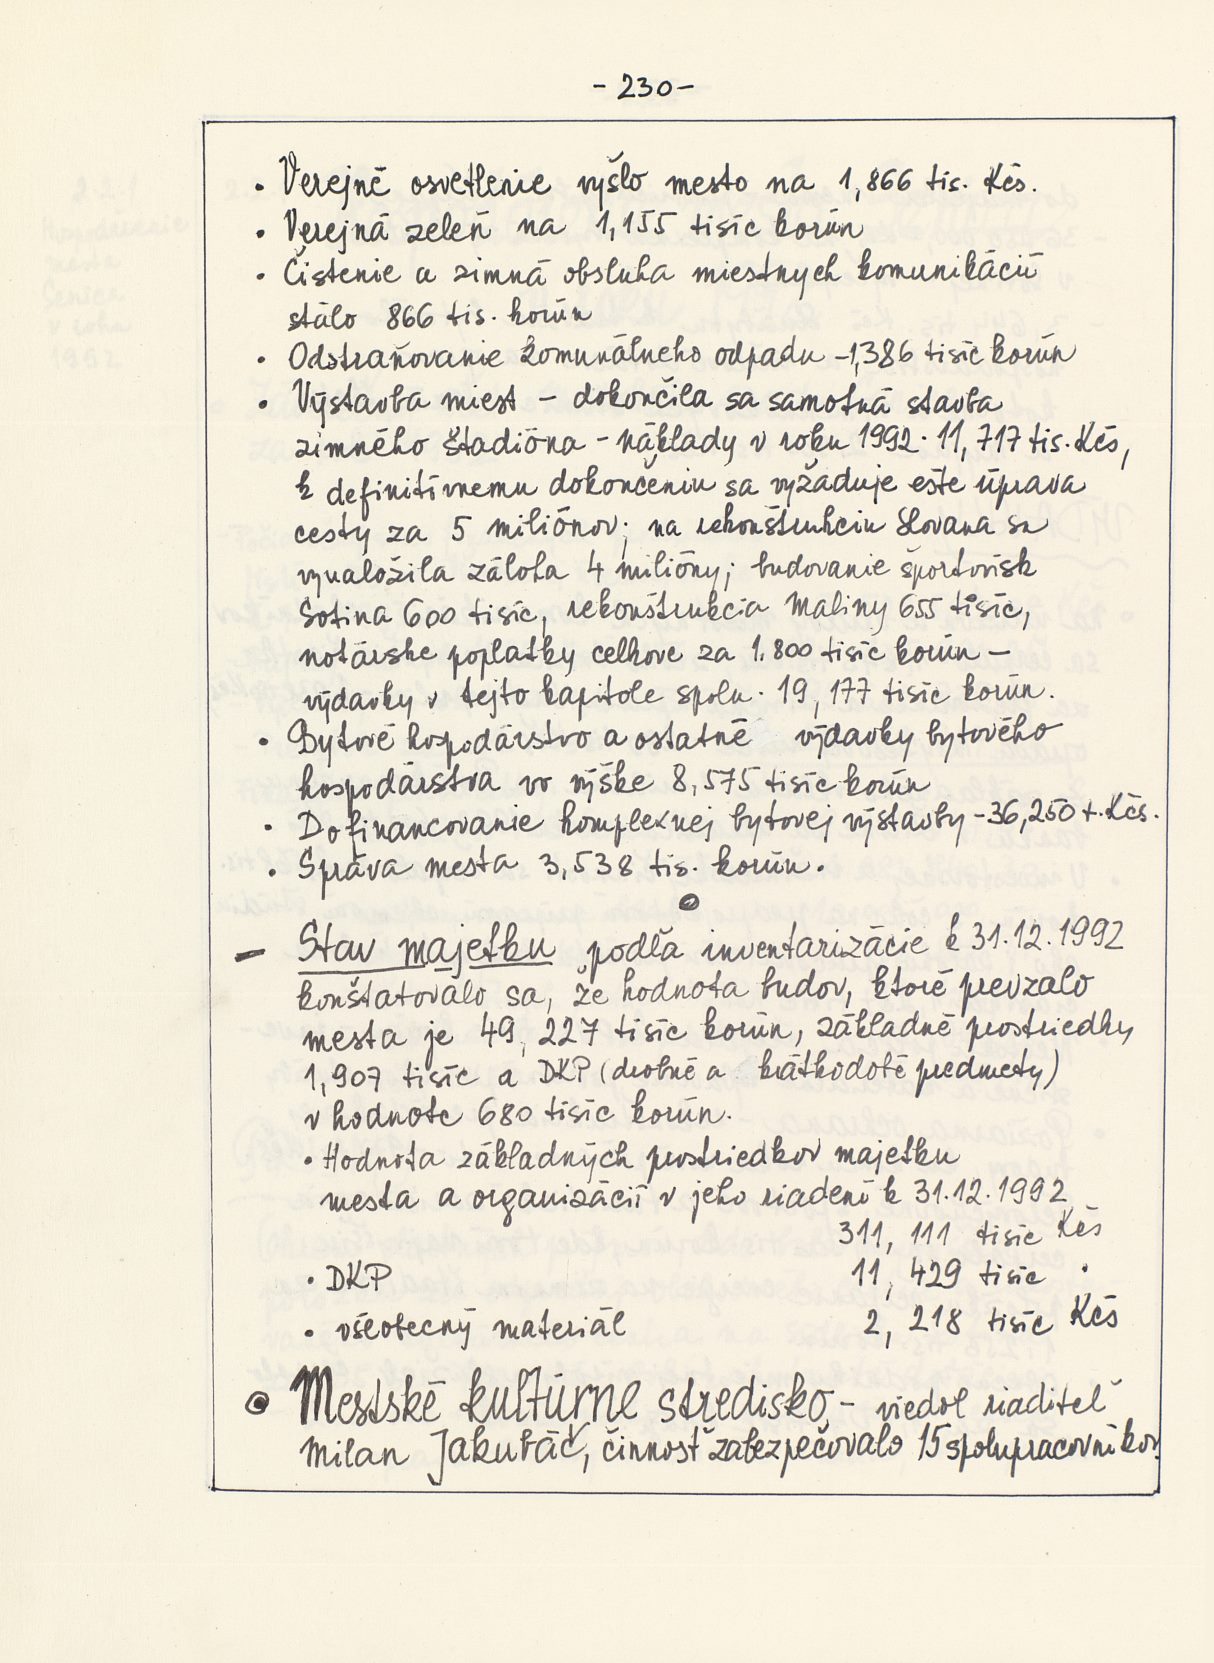 - 230 -
• Verejné osvetlenie vyšlo mesto na 1,866 tis. Kčs.
• Verejná zeleň na 1,155 tisíc korún
• Čistenie a zimná obsluha miestnych komunikácií
stálo 866 tis. korún
• Odstraňovanie komunálneho odpadu - 1,386 tisíc korún
• Výstavba miest - dokončila sa samotná stavba
zimného štadióna - náklady v roku 1992 · 11,717 tis. Kčs,
k definitívnemu dokončeniu sa vyžaduje ešte úprava
cesty za 5 miliónov; na rekonštrukciu Slovana sa
vynaložila záloha 4 milióny; budovanie športovísk
Sotina 600 tisíc, rekonštrukcia Maliny 655 tisíc,
notárske poplatky celkove za 1.800 tisíc korún -
výdavky v tejto kapitole spolu · 19,177 tisíc korún.
• Bytové hospodárstvo a ostatné výdavky bytového
hospodárstva vo výške 8,575 tisíc korún
• Dofinancovanie komplexnej bytovej výstavby - 36,250 t. Kčs.
• Správa mesta 3,538 tis. korún.
- Stav majetku podľa inventarizácie k 31.12.1992
konštatovalo sa, že hodnota budov, ktoré prevzalo
mesta je 49,227 tisíc korún, základné prostriedky
1,907 tisíc a DKP (drobné a krátkodobé predmety)
v hodnote 680 tisíc korún.
• Hodnota základných prostriedkov majetku
mesta a organizácií v jeho riadení k 31.12.1992
311,111 tisíc Kčs
• DKP 11,429 tisíc •
• všeobecný materiál 2,218 tisíc Kčs
Mestské kultúrne stredisko - viedol riaditeľ
Milan Jakubáč, činnosť zabezpečovalo 15 spolupracovníkov.